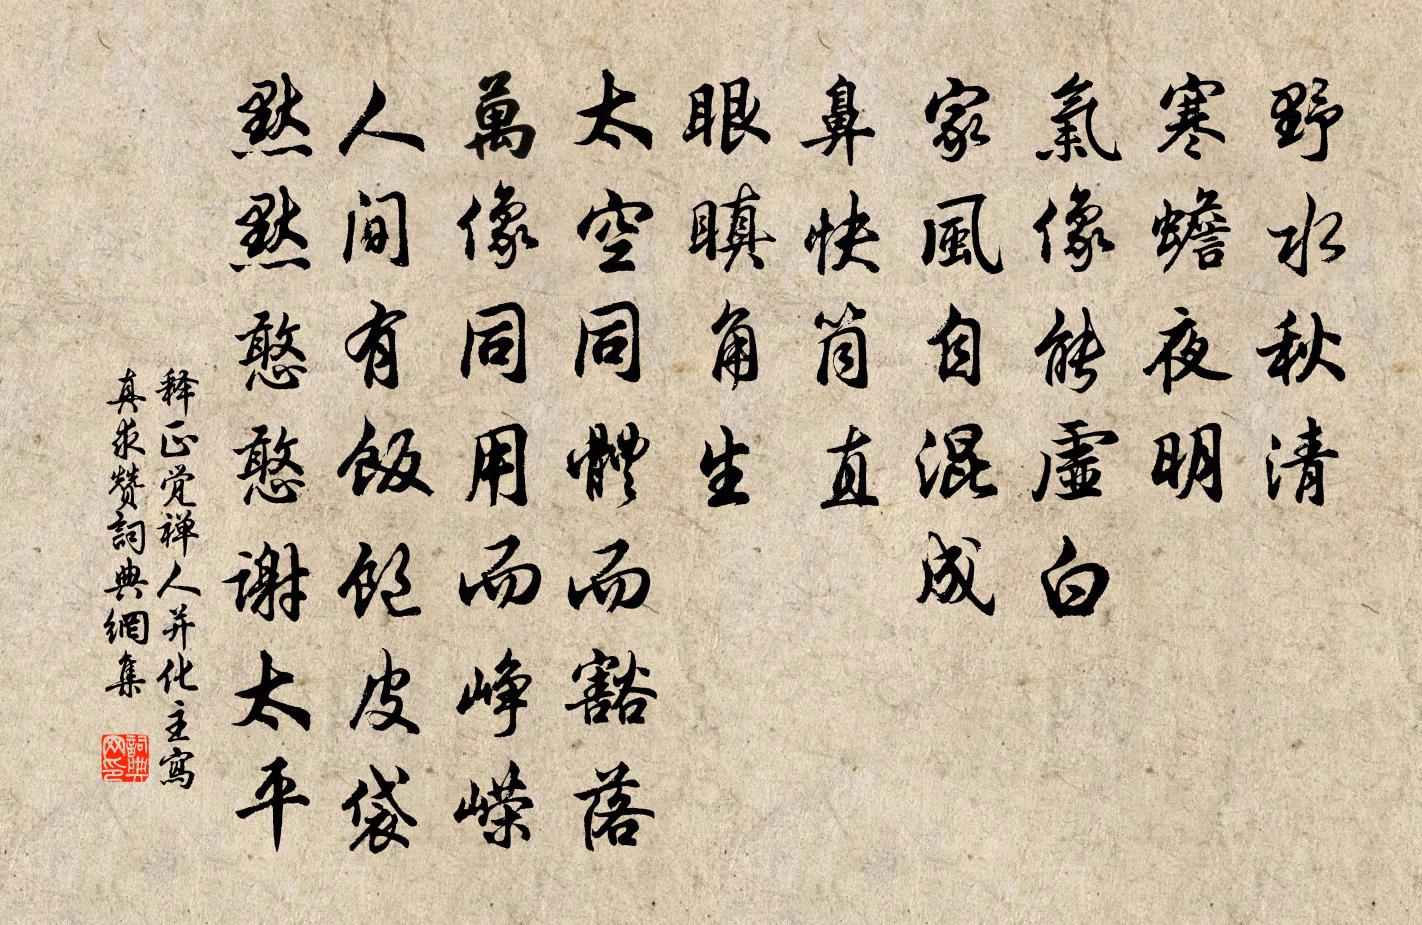 野水秋清
寒蟾夜明
氣像能虛白
家風自混成
鼻快筒直
眼瞋角生
太空同體而豁落
萬像同用而崢嶸
人間有飯飽皮袋
默默憨憨謝太平
释正觉禅人并化主寫
真求赞詞典網集
詞典
网印